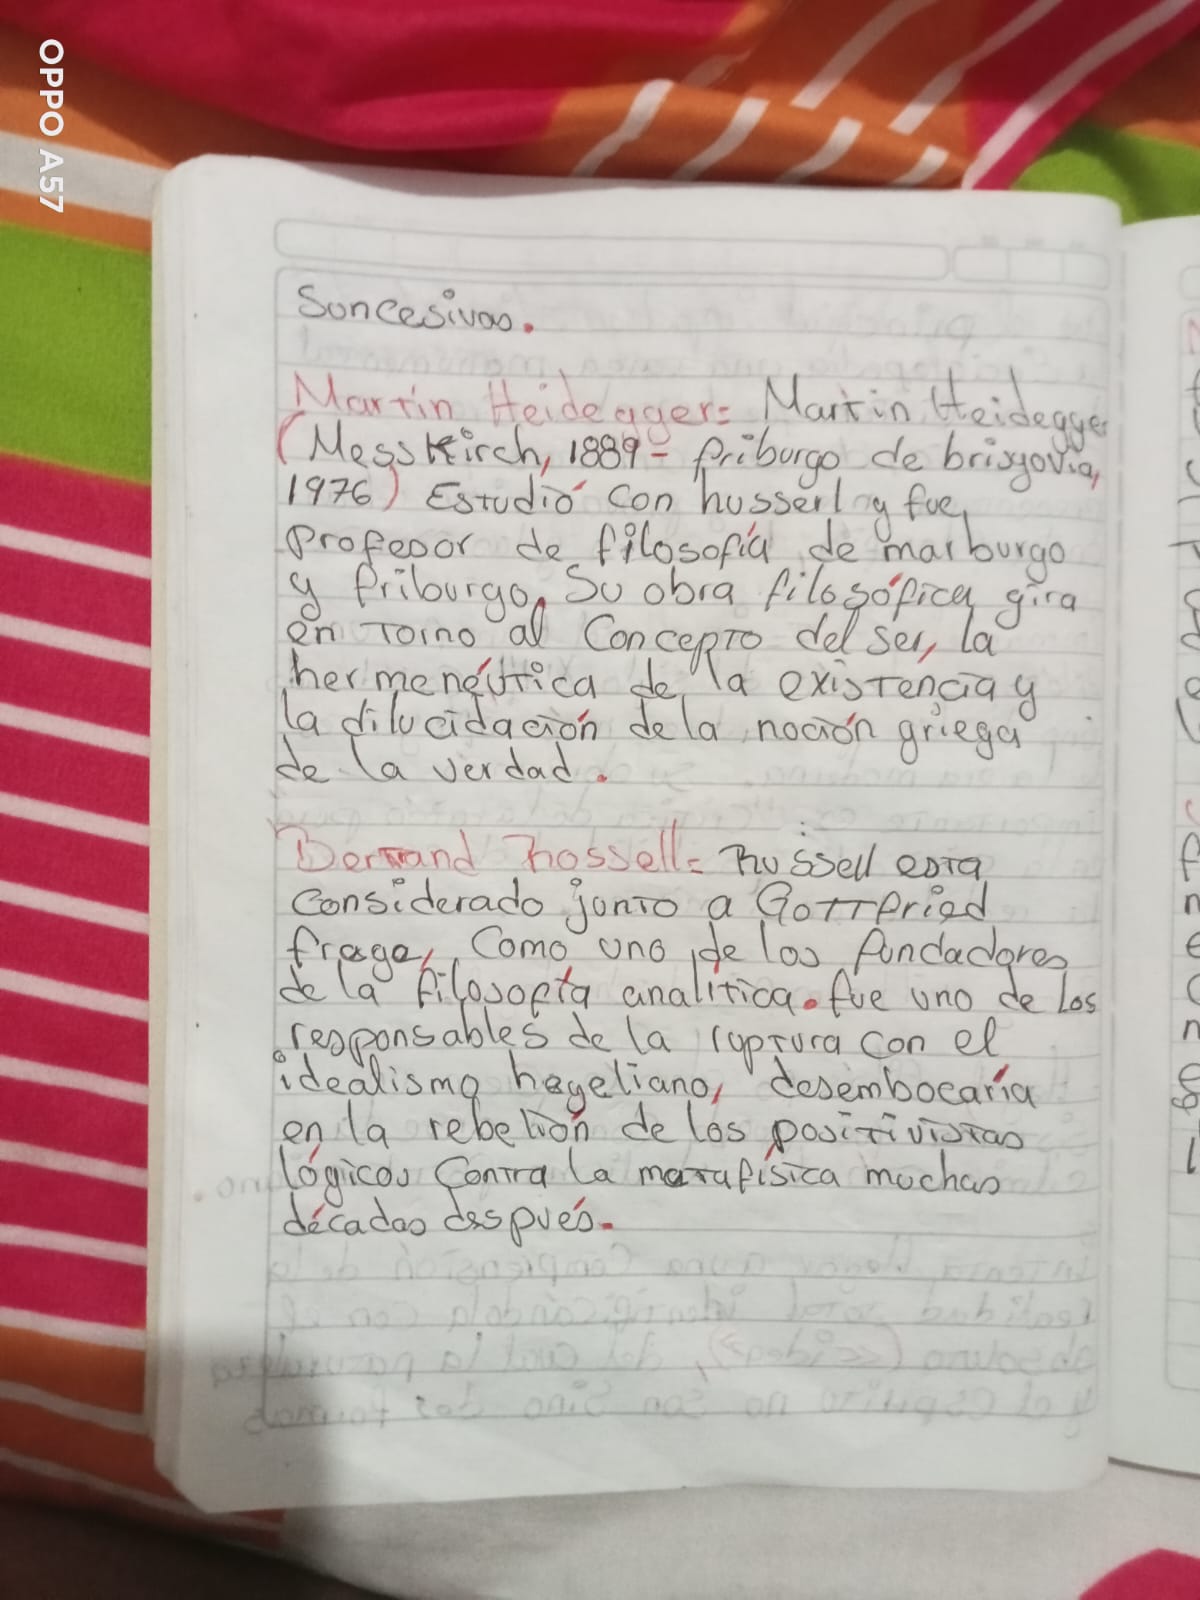 OPPO A57
Soncesivas.
Martin Heidegger= Martin Heidegger
(Messkirch, 1889- friburgo de brisgovia,
1976) Estudió con husserl y fue
profesor de filosofía de marburgo
y friburgo. Su obra filosófica gira
en torno al concepto del ser, la
hermenéutica de la existencia y
la dilucidación de la noción griega
de la verdad.
Bertrand Rossell= Russell esta
considerado junto a Gottfried
frege, como uno de los fundadores
de la filosofía analítica. fue uno de los
responsables de la ruptura con el
idealismo hegeliano, desembocaría
en la rebelión de los positivistas
lógicos contra la matafísica muchas
décadas despues.